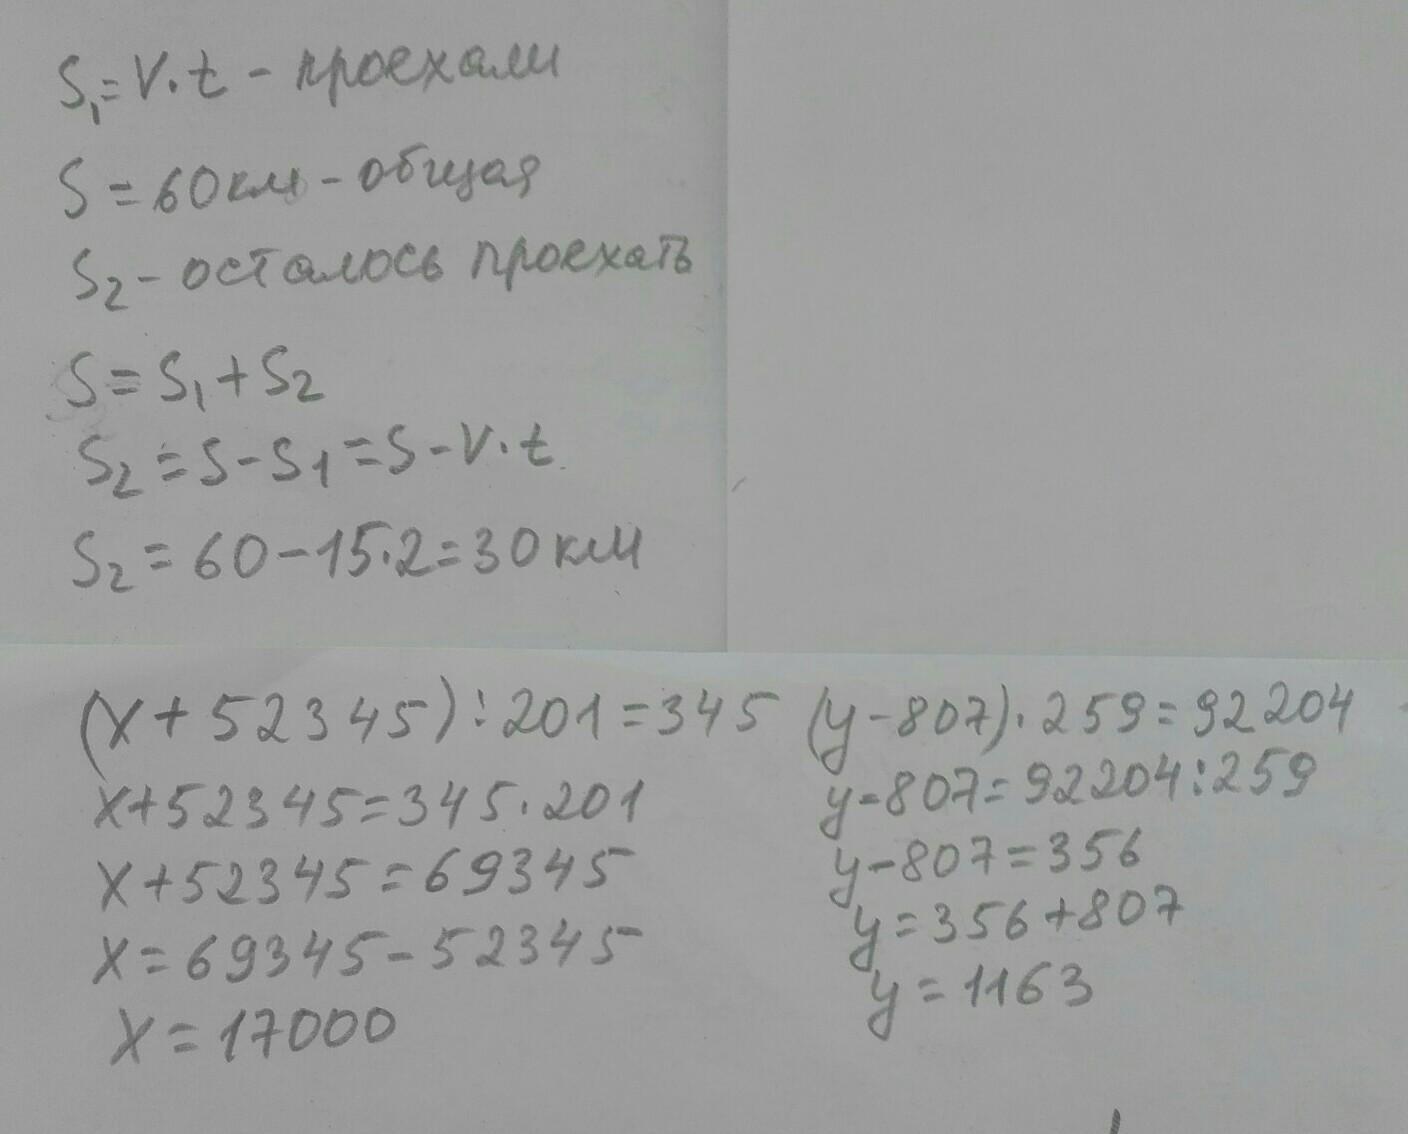 S₁=V·t - проехали
S=60км - общая
S₂ - осталось проехать
S=S₁+S₂
S₂=S-S₁=S-V·t
S₂=60-15·2=30км
(x+52345):201=345
x+52345=345·201
x+52345=69345
x=69345-52345
x=17000
(y-807)·259=92204
y-807=92204:259
y-807=356
y=356+807
y=1163